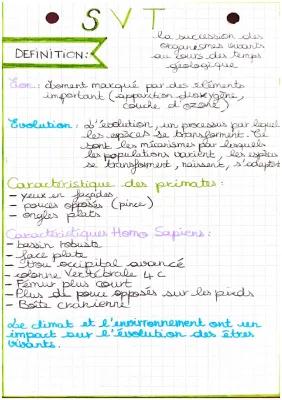 SVT
DEFINITION:
la succession des
organismes vivants
au cours des temps
géologique
Eon: élément marqué par des éléments
important (apparition dioxygène,
couche d'ozone)
Evolution: L'évolution, un processus par lequel
les espèces se transforment. Ce
sont les mécanismes par lesquels
les populations varient, les espèces
se transforment, naissent, s'adapte
Caractéristique des primates:
- yeux en façades
- pouces opposés (pince)
- ongles plats
Caractéristiques Homo Sapiens:
- bassin robuste
- face plate
- Trou occipital avancé
- colonne Vertébrale 4 C
- Fémur plus court
- Plus de pouce opposés sur les pieds
- Boîte crânienne
Le climat et l'environnement ont un
impact sur l'évolution des êtres
vivants.